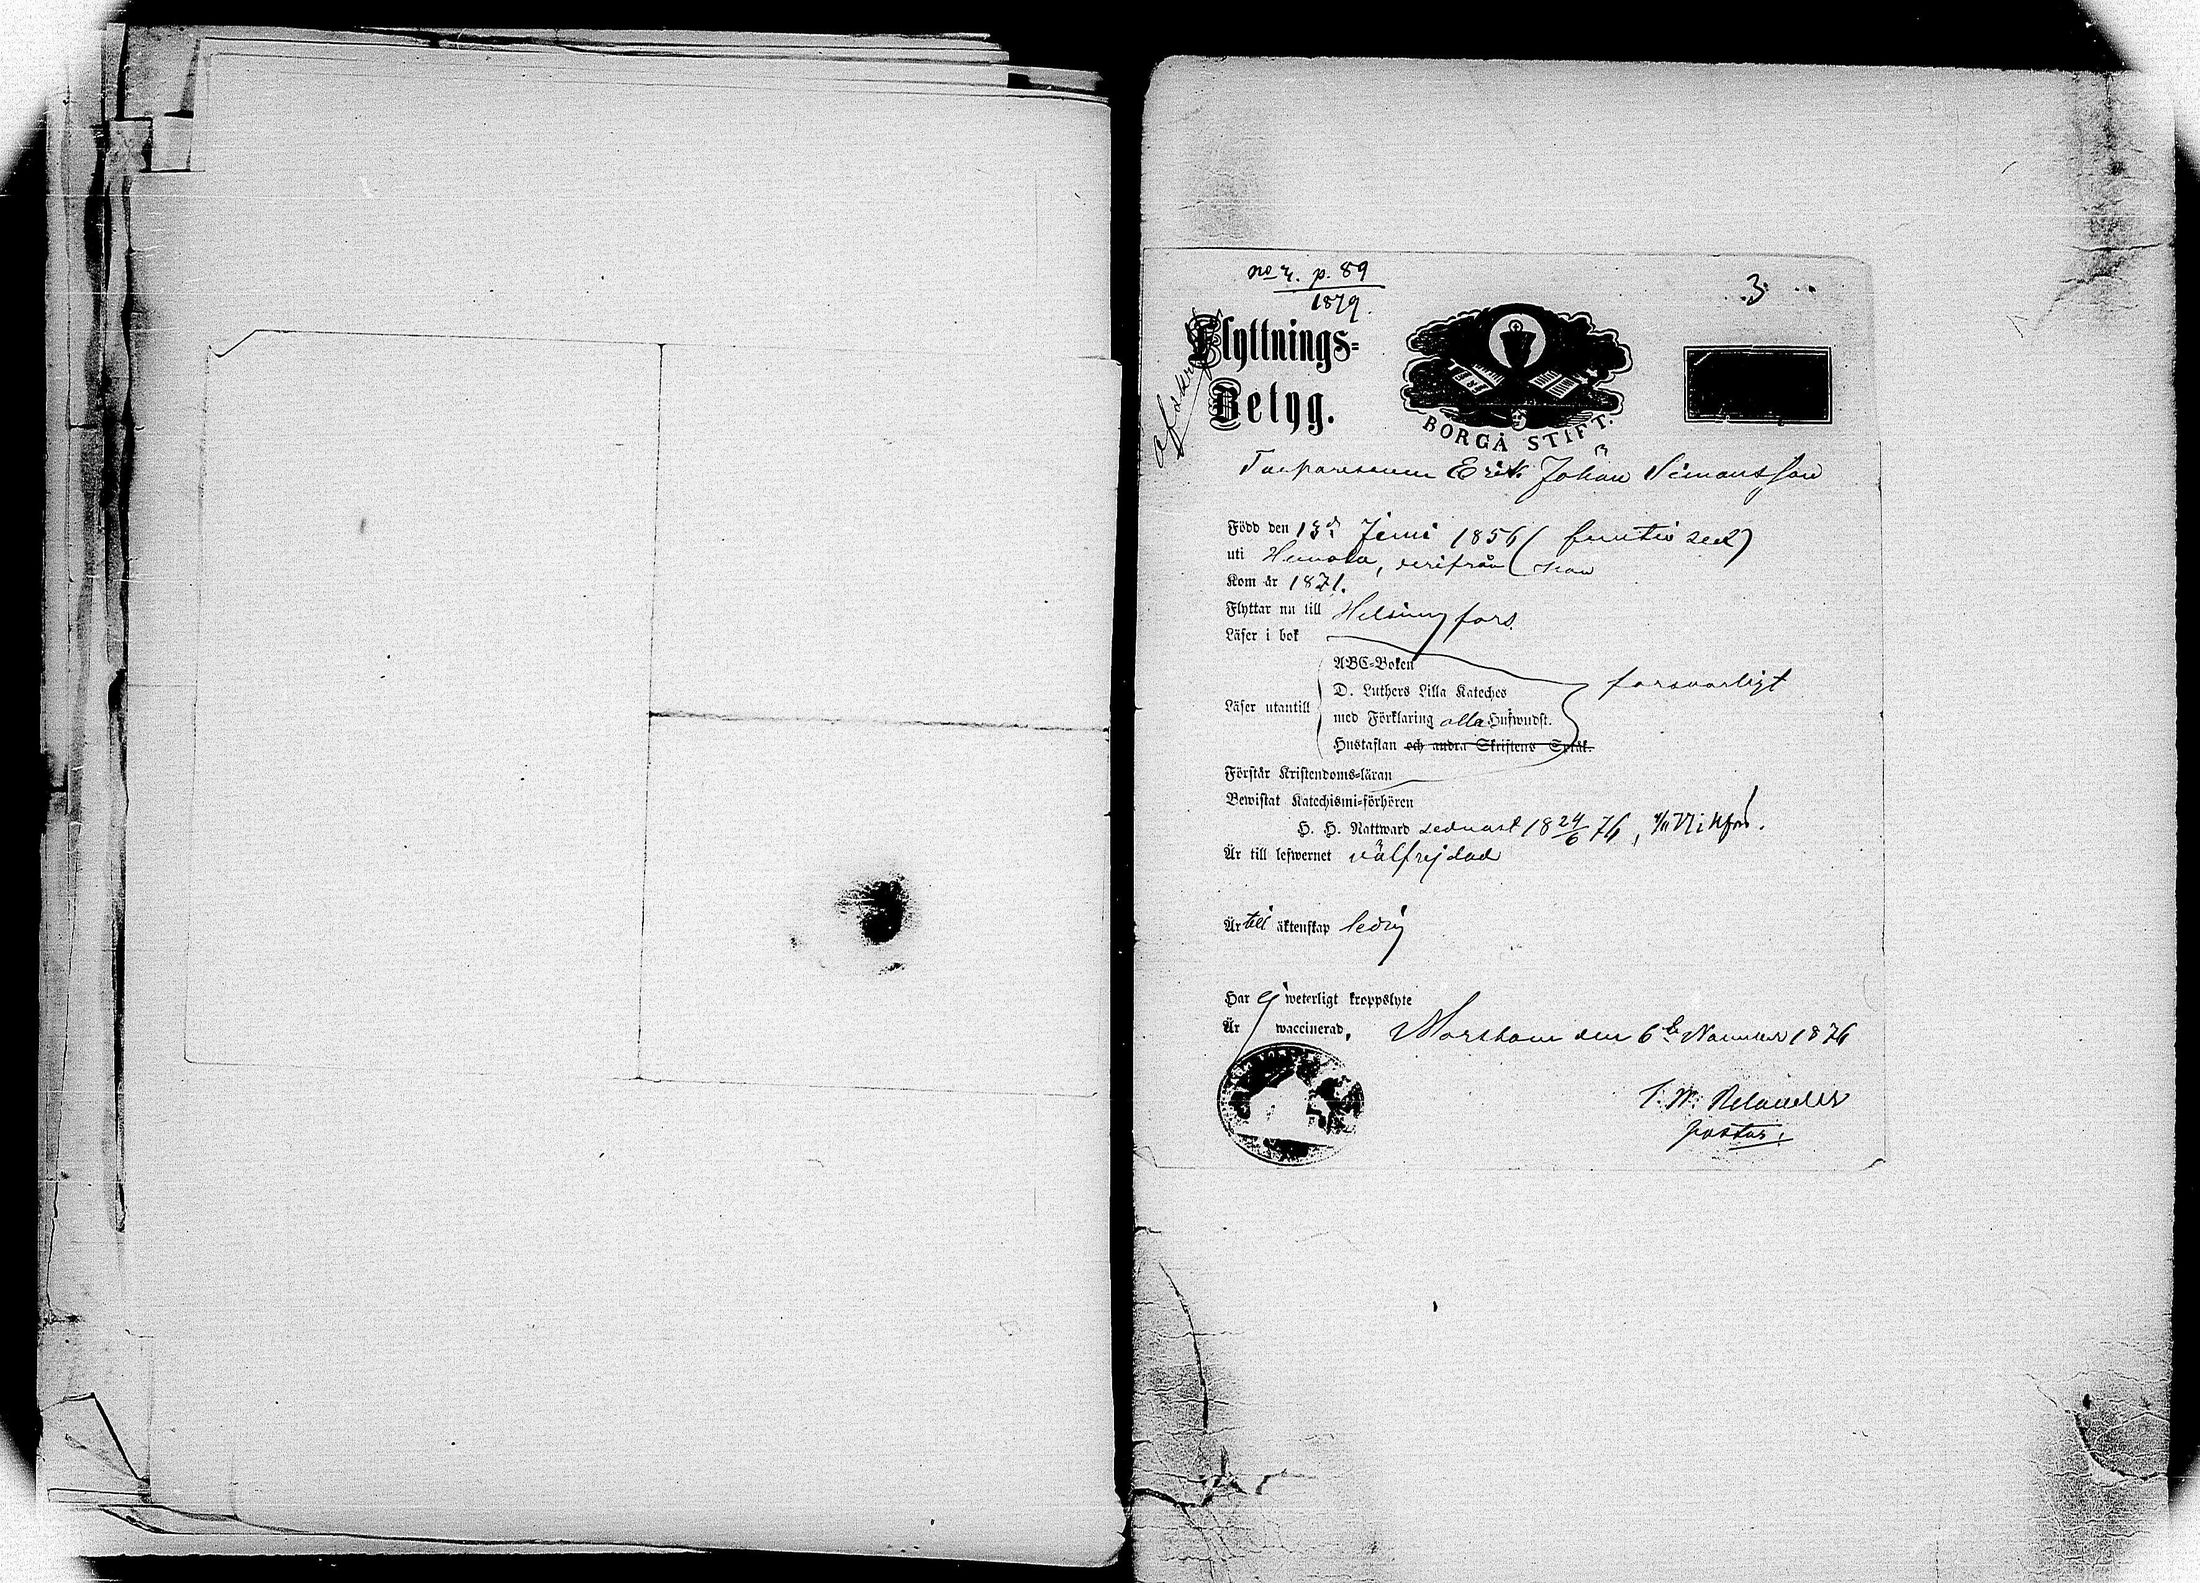 no 2. p. 89
1879.
3
Flyttnings-
Betyg.
BORGÅ STIFT.
Erik Johan Simonsson
Född den 13de Juni 1856
uti Hemola, derifrån
Kom år 1871.
Flyttar nu till Helsingfors
Läser i bok
ABC-Boken
D. Luthers Lilla Kateches
Läser utantill
med Förklaring alla Hufwudst.
försvarligt
Hustaflan och andra Skriftens Språk.
Förstår Kristendoms-läran
Bewistat Katechismi-förhören
H. H. Nattward sednast 18 24/6 76,
Är till lefwernet välfrejdad
Är till äktenskap ledig
Har ej weterligt kroppslyte
Är waccinerad,
den 6te November 1876
Relander
pastor.